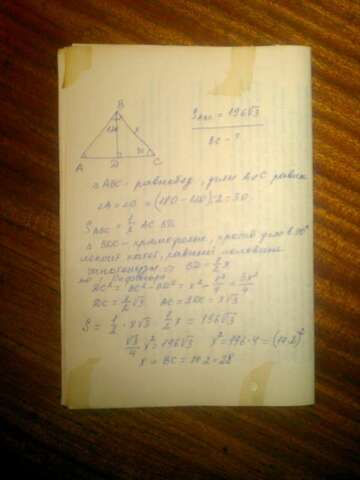 B
120
x
30
A
D
C
S ABC = 196√3
BC - ?
△ABC - равнобед, углы A и C равны
∠A = ∠C = (180 - 120):2 = 30.
S ABC = 1/2 AC BD
△ BDC - прямоугольн, против угла в 30°
лежит катет, равный половине
гипотенузы ⇒ BD = 1/2 x
по т. Пифагора
DC² = BC² - BD² = x² - x²/4 = 3x²/4
DC = x/2 √3 AC = 2DC = x√3
S = 1/2 · x√3 · 1/2 x = 196√3
√3/4 x² = 196√3 x² = 196·4 = (14·2)²
x = BC = 14·2 = 28